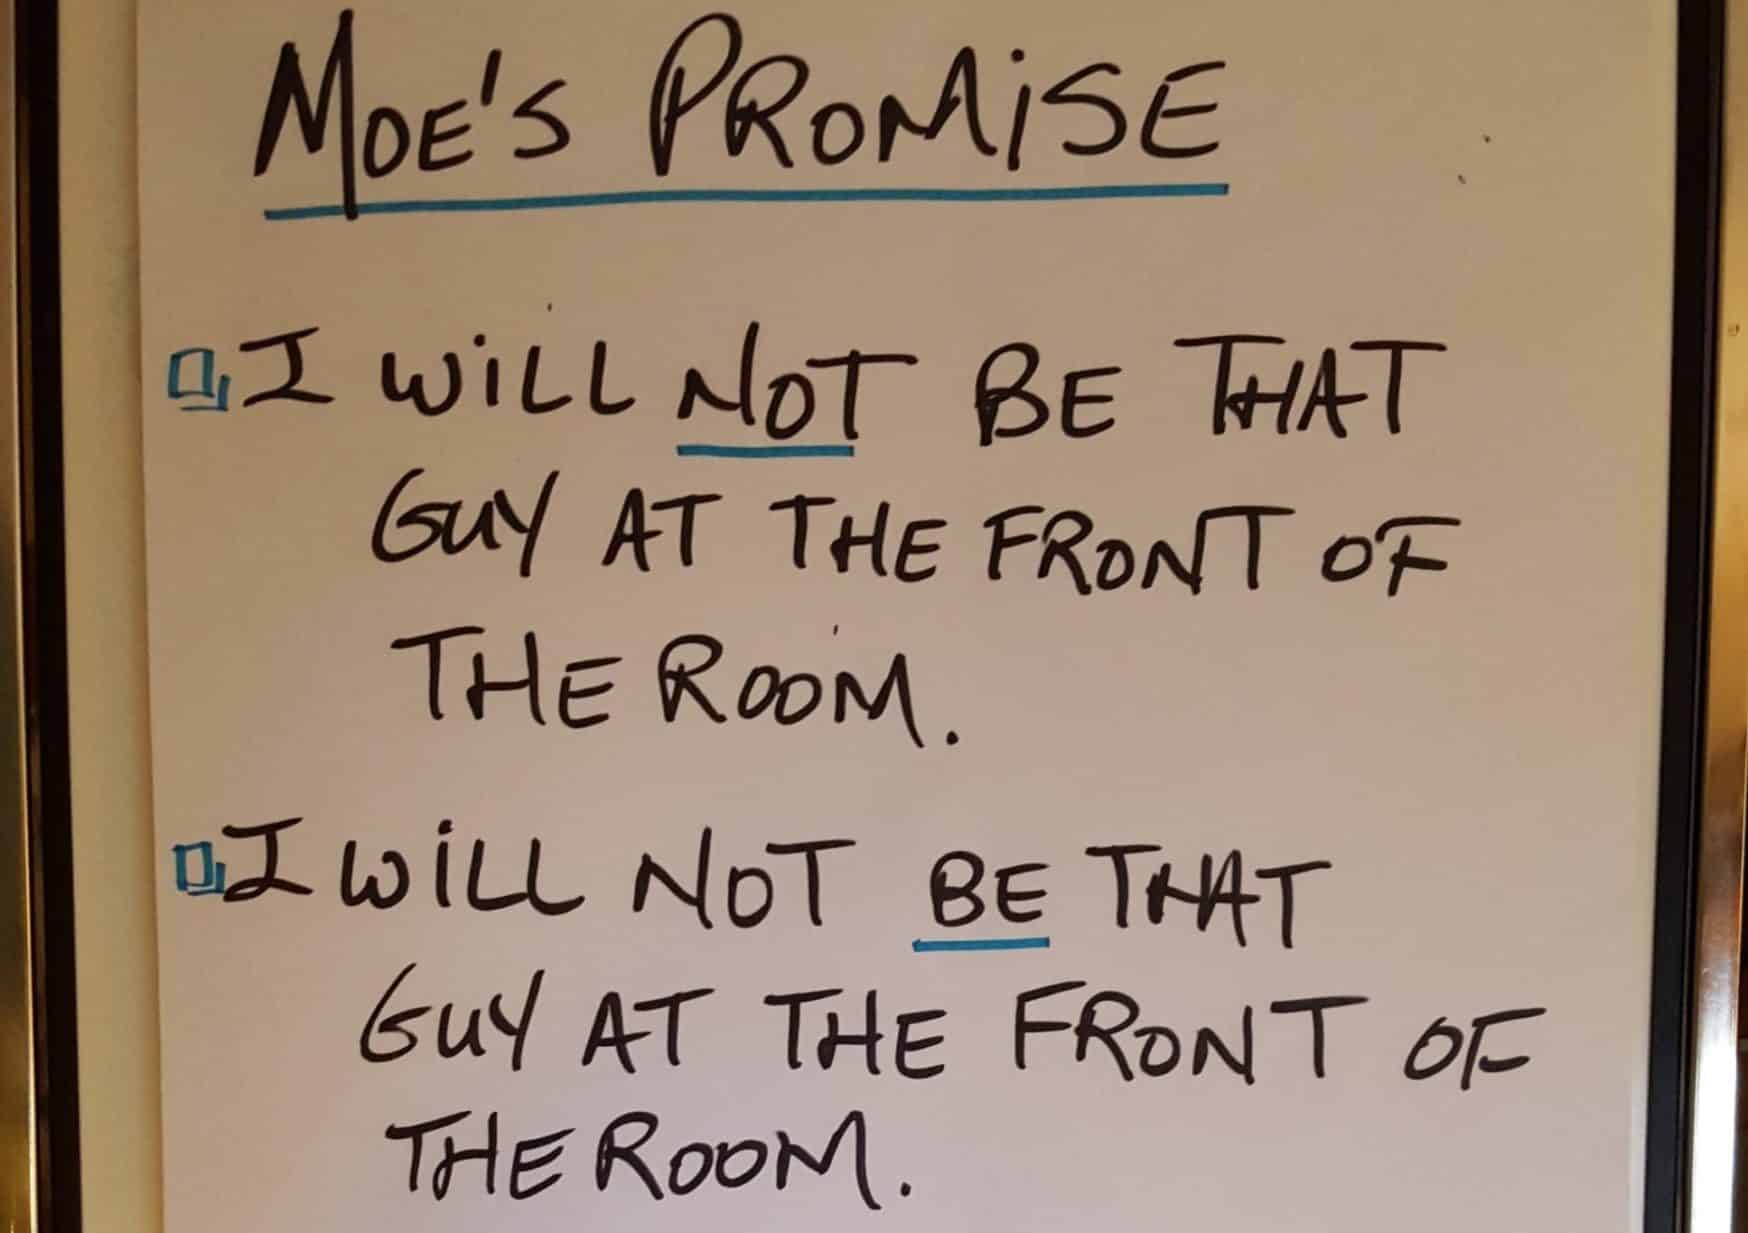 MOE'S PROMISE
I WILL NOT BE THAT
GUY AT THE FRONT OF
THE ROOM.
I WILL NOT BE THAT
GUY AT THE FRONT OF
THE ROOM.